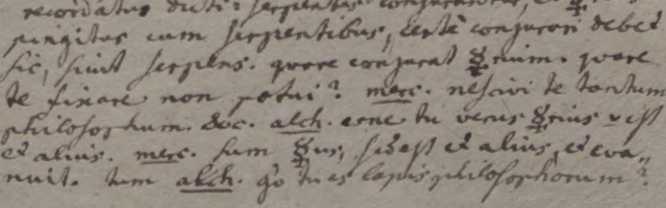 recordatus dicti: serpentes conjurantur, et ☿
pingitur cum serpentibus, certè conjurari debet
sic, sicut serpens. quare conjurat ☿rium. quare
te fixare non potui? merc. nescivi te tantum
philosophum. Doc. alch. erne tu verus ☿rius v est
et alius. merc. sum ☿us, sed est et alius, et eva⸗
nuit. tum alch. gò tu es lapis philosophorum?